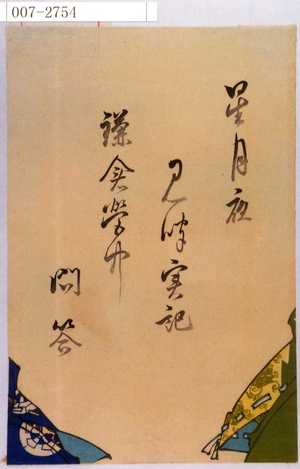 007-2754
星月夜
見聞実記
鎌倉学力
問答